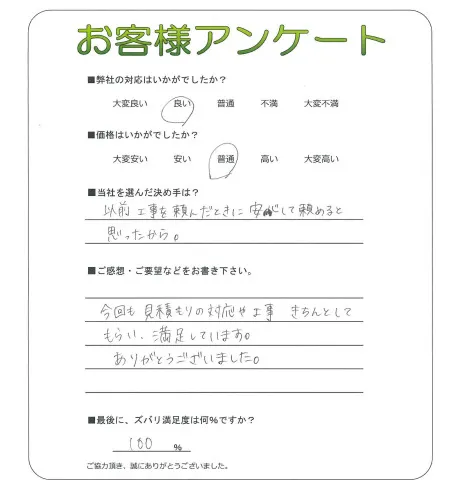 お客様アンケート
■弊社の対応はいかがでしたか？
大変良い 良い 普通 不満 大変不満
■価格はいかがでしたか？
大変安い 安い 普通 高い 大変高い
■当社を選んだ決め手は？
以前工事を頼んだときに安心して頼めると
思ったから。
■ご感想・ご要望などをお書き下さい。
今回も見積もりの対応や工事 きちんとして
もらい、満足しています。
ありがとうございました。
■最後に、ズバリ満足度は何％ですか？
100 ％
ご協力頂き、誠にありがとうございました。